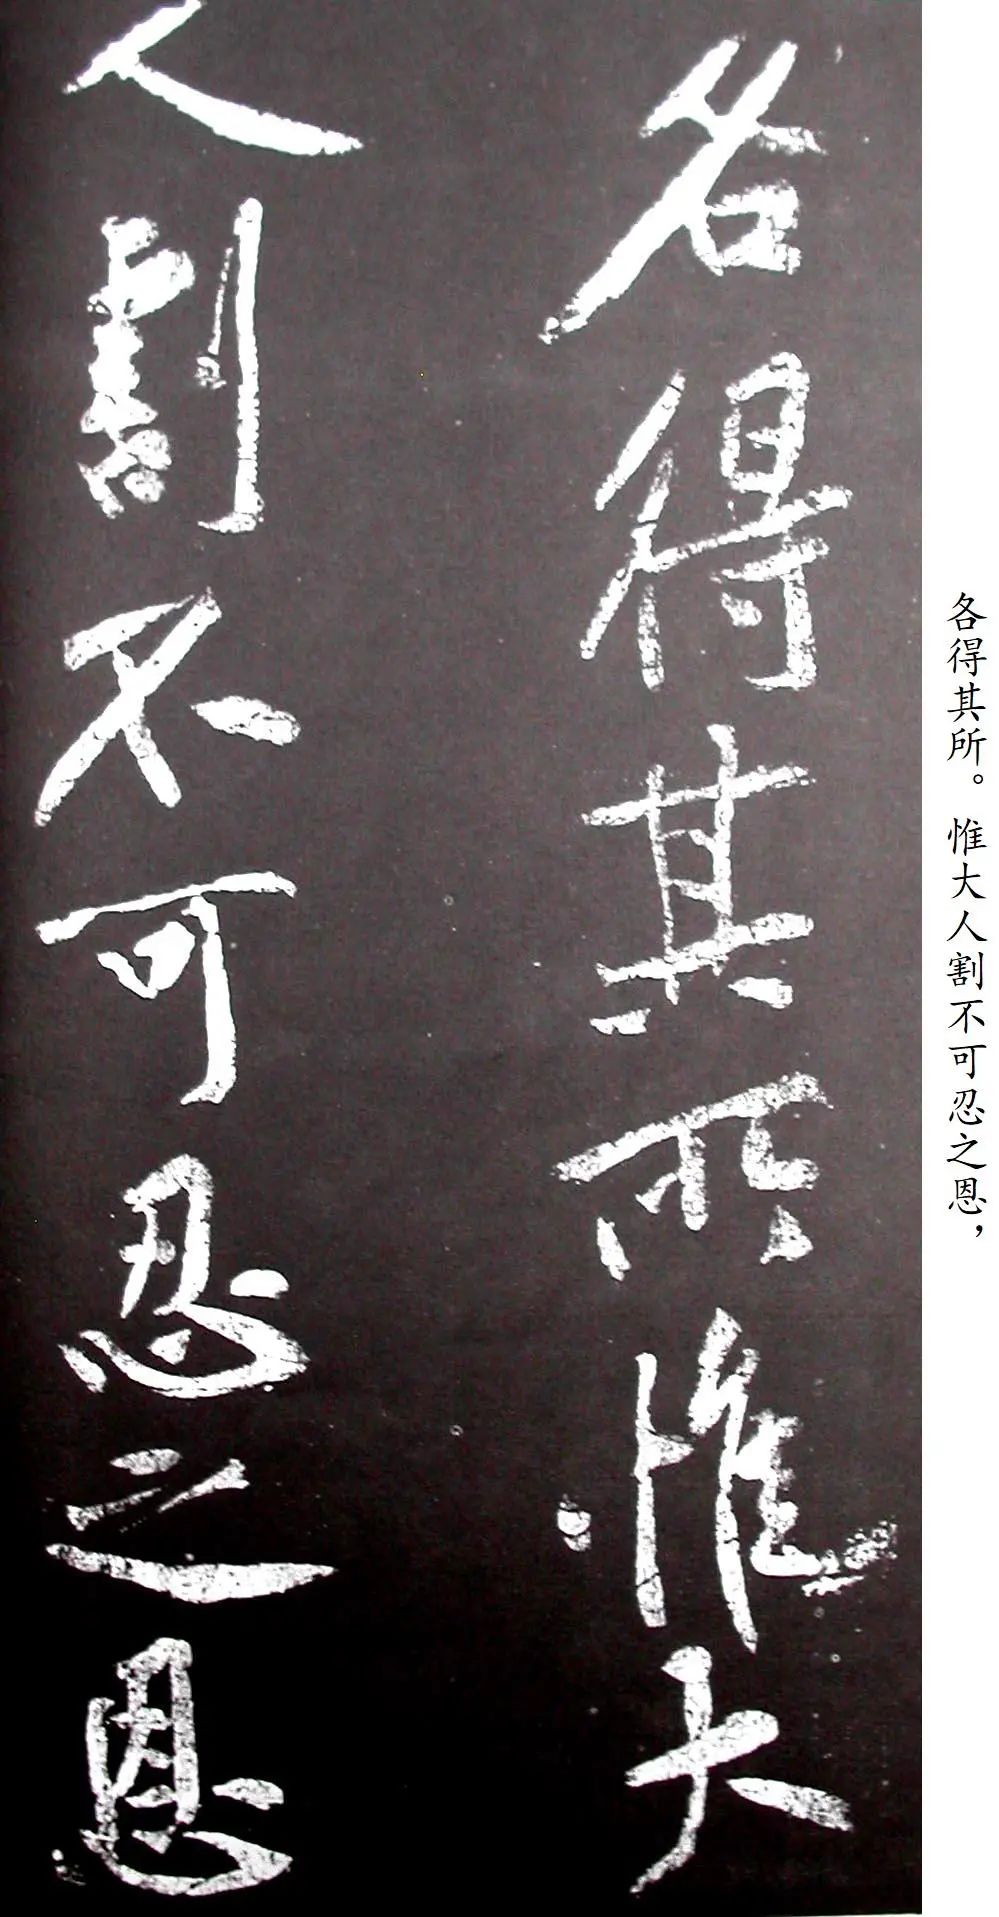 各得其所。惟大人割不可忍之恩，
各得其所惟大
人割不可忍之恩